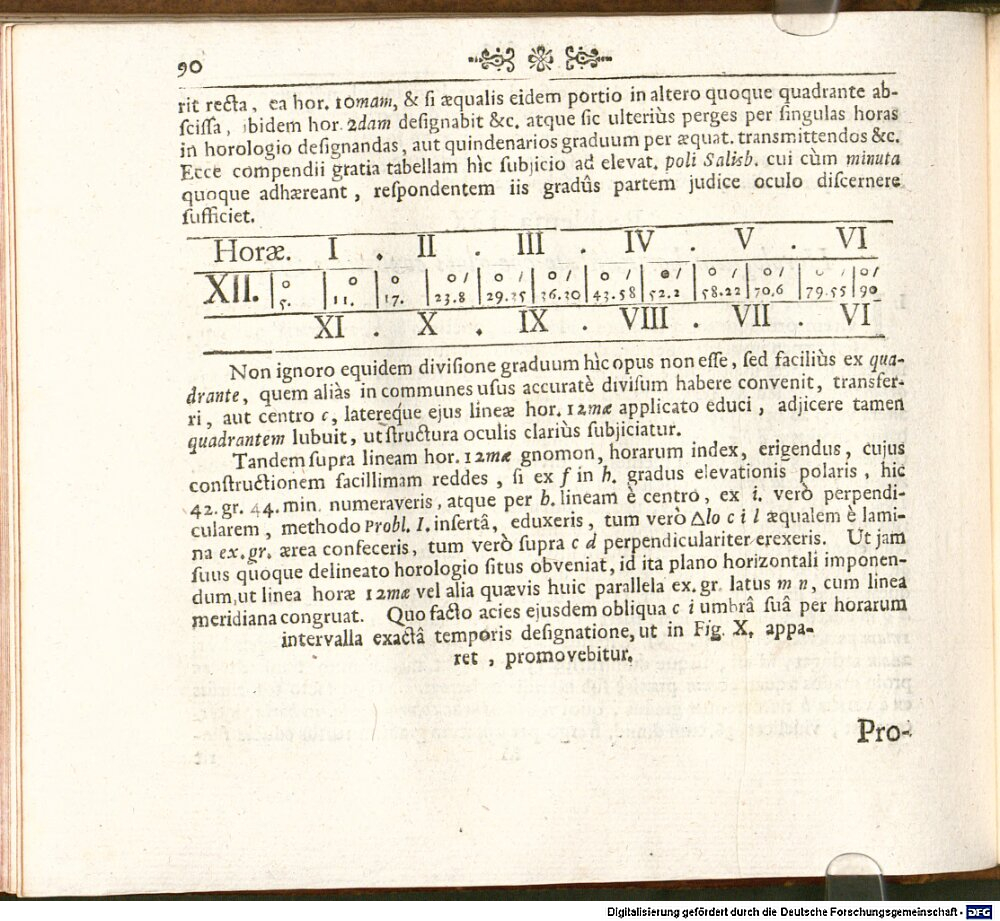 90
rit recta, ea hor. 10mam, & si æqualis eidem portio in altero quoque quadrante ab-
scissa, ibidem hor. 2dam designabit &c. atque sic ulteriùs perges per singulas horas
in horologio designandas, aut quindenarios graduum per æquat. transmittendos &c.
Ecce compendii gratia tabellam hìc subjicio ad elevat. poli Salisb. cui cùm minuta
quoque adhæreant, respondentem iis gradûs partem judice oculo discernere
sufficiet.
Horæ. I . II . III . IV . V . VI
XII. 5. 11. 17. 23.8 29.35 36.20 43.58 52.2 58.22 70.6 79.55 90
XI . X . IX . VIII . VII . VI
Non ignoro equidem divisione graduum hìc opus non esse, sed faciliùs ex qua-
drante, quem aliàs in communes usus accuratè divisum habere convenit, transfer-
ri, aut centro c, latereque ejus lineæ hor. 12mæ applicato educi, adjicere tamen
quadrantem lubuit, ut structura oculis clariùs subjiciatur.
Tandem supra lineam hor. 12mæ gnomon, horarum index, erigendus, cujus
constructionem facillimam reddes, si ex f in h. gradus elevationis polaris, hic
42. gr. 44. min. numeraveris, atque per b. lineam è centro, ex i. verò perpendi-
cularem, methodo Probl. I. insertâ, eduxeris, tum verò Δlo c i l æqualem è lami-
na ex. gr. ærea confeceris, tum verò supra c d perpendiculariter erexeris. Ut jam
suus quoque delineato horologio situs obveniat, id ita plano horizontali imponen-
dum, ut linea horæ 12mæ vel alia quævis huic parallela ex. gr. latus m n, cum linea
meridiana congruat. Quo facto acies ejusdem obliqua c i umbrâ suâ per horarum
intervalla exactâ temporis designatione, ut in Fig. X. appa-
ret, promovebitur.
Pro-
Digitalisierung gefördert durch die Deutsche Forschungsgemeinschaft - DFG